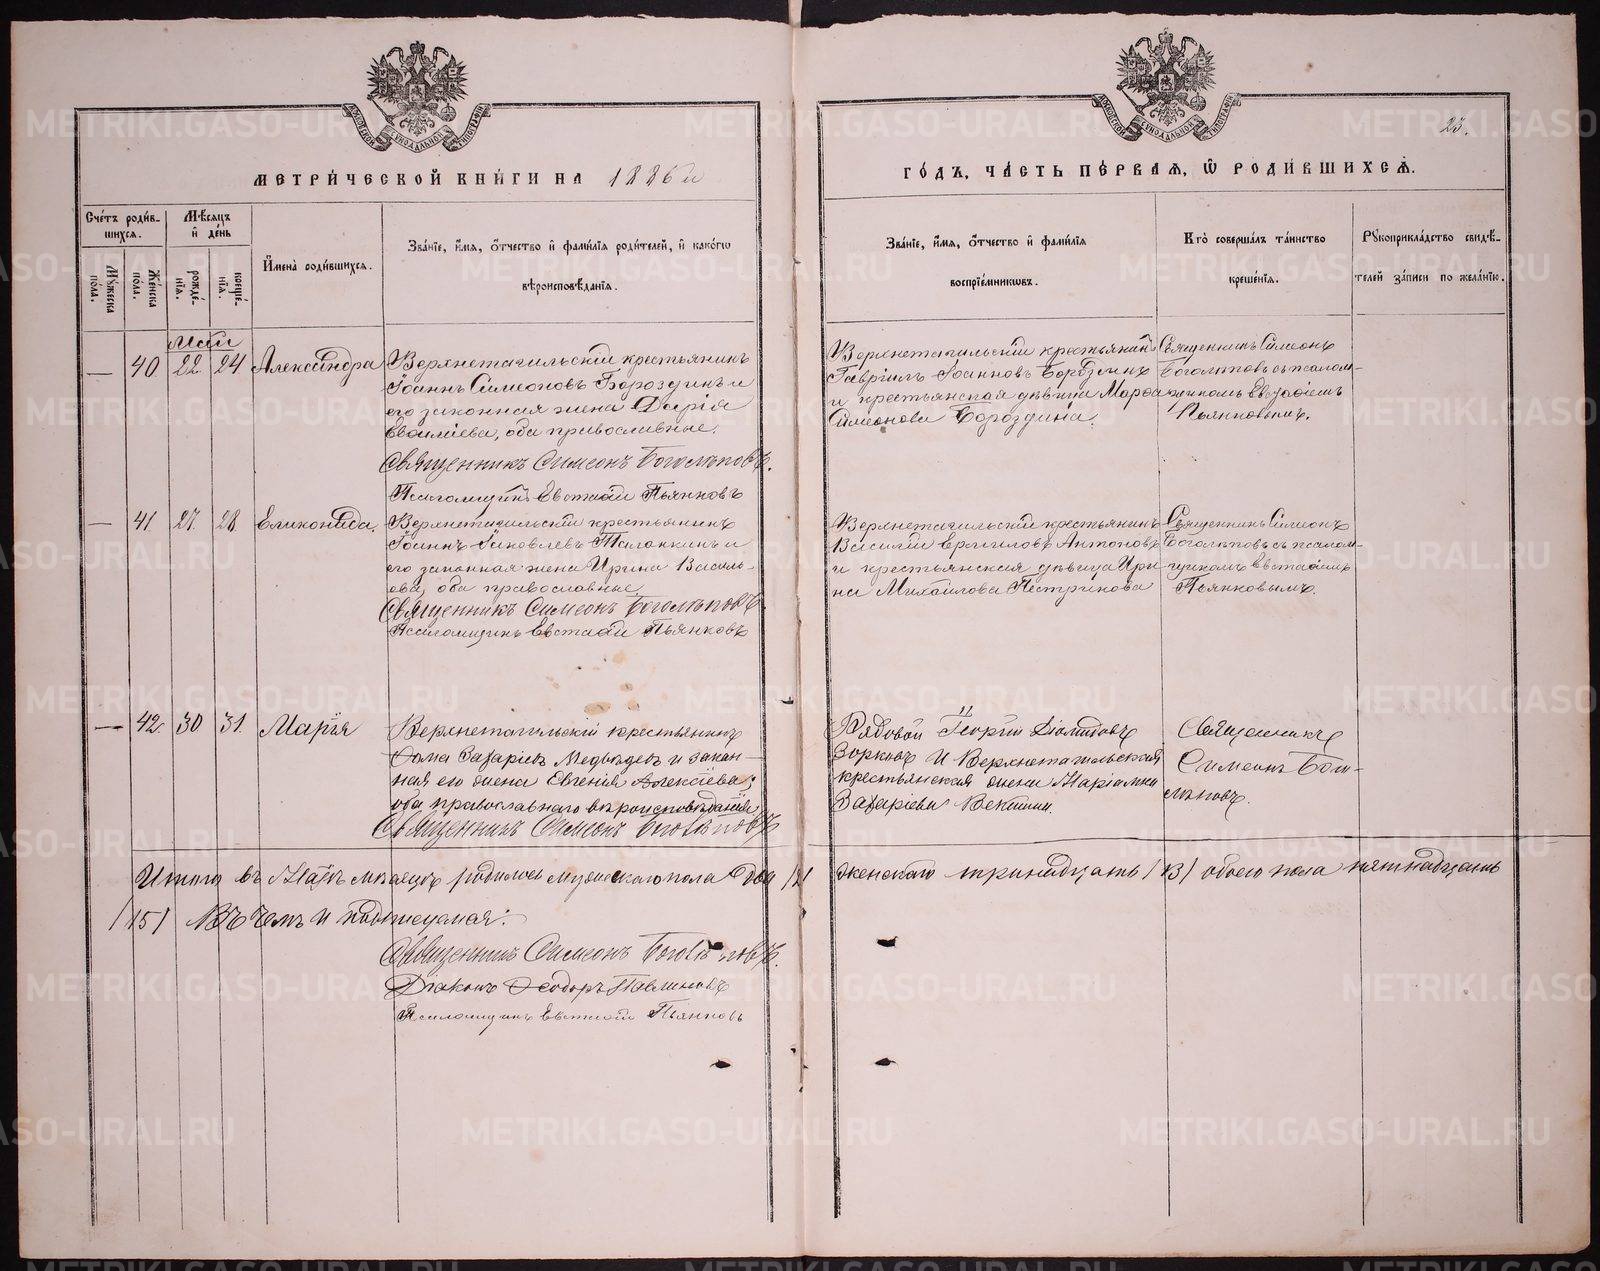 МЕТРИ́ЧЕСКОЙ КНИ́ГИ НА 1886й
ГО́ДЪ, ЧА́СТЬ ПЕ́РВАЯ, Ѿ РОДИ́ВШИХСЯ.
23.
Сче́тъ роди́в-
шихся.
Мѣ́сяцъ
и҆ де́нь
Мꙋ́жеска
по́ла.
Же́нска
по́ла.
рожде́-
нїя.
креще́-
нїя.
И҆мена̀ роди́вшихся.
Зва́нїе, и҆́мя, ѻ҆́тчество и҆ фами́лїя роди́телей, и҆ како́гѡ
вѣроисповѣ́данїя.
Зва́нїе, и҆́мя, ѻ҆́тчество и҆ фами́лїя
воспрїе́мникѡвъ.
Кто̀ соверша́лъ та́инство
креще́нїя.
Рꙋкоприкла́дство свидѣ́-
телей за́писи по жела́нїю.
Май
— 40 22. 24. Александра
Верхнетагильскій крестьянинъ
Іоаннъ Симеоновъ Бороздинъ и
его законная жена Дарія
Евсиліева, оба православные.
Священникъ Симеонъ Боголѣповъ.
Псаломщикъ Евстафій Пьянковъ
Верхнетагильскій крестьянинъ
Гавріилъ Іоанновъ Бороздинъ
и крестьянская дѣвица Марѳа
Симеонова Бороздина.
Священникъ Симеонъ
Боголѣповъ съ псалом-
щикомъ Евстафіемъ
Пьянковымъ.
— 41 27. 28. Еликонида.
Верхнетагильскій крестьянинъ
Іоаннъ Іаковлевъ Таланкинъ и
его законная жена Ирина Василь-
ева, оба православные
Священникъ Симеонъ Боголѣповъ.
Псаломщикъ Евстафій Пьянковъ
Верхнетагильскій крестьянинъ
Василій Ермиловъ Антоновъ
и крестьянская дѣвица Ири-
на Михайлова Пестрикова
Священникъ Симеонъ
Боголѣповъ съ псалом-
щикомъ Евстафіемъ
Пьянковымъ.
— 42. 30 31. Марія
Верхнетагильскій крестьянинъ
Ѳома Захаріевъ Медвѣдевъ и закон-
ная его жена Евгенія Алексіева;
оба православнаго вѣроисповѣданія
Священникъ Симеонъ Боголѣповъ
Рядовой Георгій Діомидовъ
Зорковъ и Верхнетагильская
крестьянская жена Маріамна
Захаріева Векшина.
Священникъ
Симеонъ Бого-
лѣповъ.
Итого въ Маѣ мѣсяцѣ родилось мужескаго пола два /2/ женскаго тринадцать /13/ обоего пола пятнадцать
/15/ Въ чемъ и подписуемся:
Священникъ Симеонъ Боголѣповъ.
Діаконъ Ѳеодоръ Павлиновъ
Псаломщикъ Евстафій Пьянковъ
METRIKI.GASO-URAL.RU